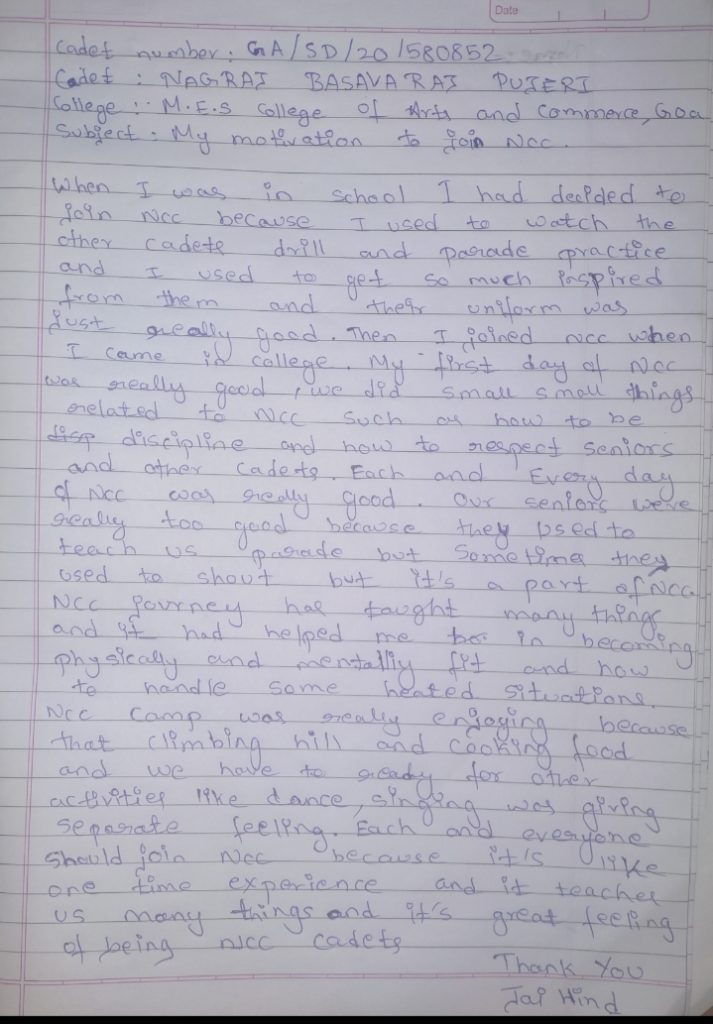 Date
Cadet number : GA/SD/20/580852
Cadet : NAGRAJ BASAVARAJ PUJERI
College :- M.E.S College of Arts and Commerce, Goa
Subject : My motivation to join NCC.
When I was in school I had decided to
join NCC because I used to watch the
other cadets drill and parade practice
and I used to get so much inspired
from them and their uniform was
just really good. Then I joined NCC when
I came in college. My first day of NCC
was really good, we did small small things
related to NCC such as how to be
disp discipline and how to respect seniors
and other cadets. Each and Every day
of NCC was really good. Our seniors were
really too good because they used to
teach us parade but sometimes they
used to shout but it's a part of NCC
NCC journey has taught many things
and it had helped me in becoming
physically and mentally fit and how
to handle some heated situations.
NCC camp was really enjoying because
that climbing hill and cooking food
and we have to ready for other
activities like dance, singing was giving
separate feeling. Each and everyone
should join NCC because it's like
one time experience and it teaches
us many things and it's great feeling
of being NCC cadets
Thank You
Jai Hind